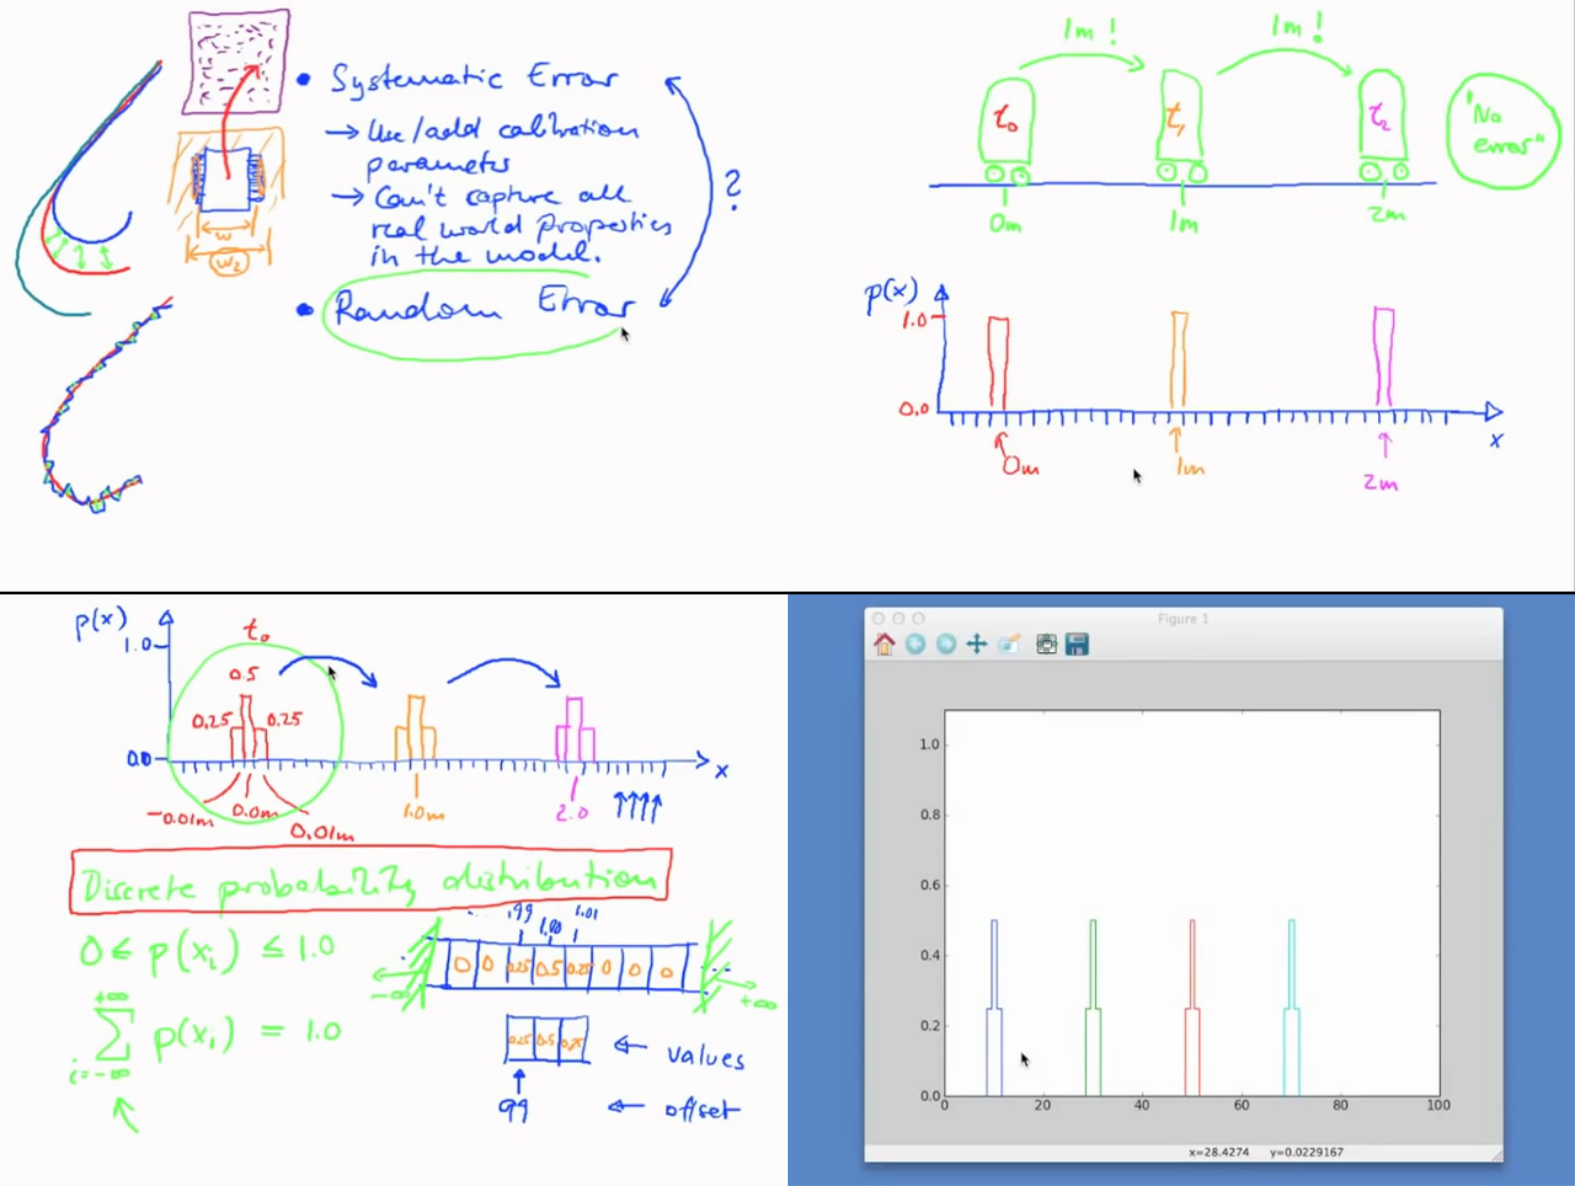 • Systematic Error
→ Use/add calibration
parameters
→ Can't capture all
real world properties
in the model.
?
w
w2
• Random Error
1m!
1m!
t0
t1
t2
"No
error"
0m
1m
2m
p(x)
1.0
0.0
x
0m
1m
2m
p(x)
1.0
t0
0.5
0.25
0.25
0.0
x
-0.01m
0.0m
0.01m
1.0m
2.0
Discrete probability distribution
0 ≤ p(xi) ≤ 1.0
+∞
∑ p(xi) = 1.0
i=-∞
... .99 1.00 1.01
0 0 0.25 0.5 0.25 0 0 0
-∞
+∞
0.25 0.5 0.25 ← values
99 ← offset
Figure 1
1.0
0.8
0.6
0.4
0.2
0.0
0 20 40 60 80 100
x=28.4274 y=0.0229167